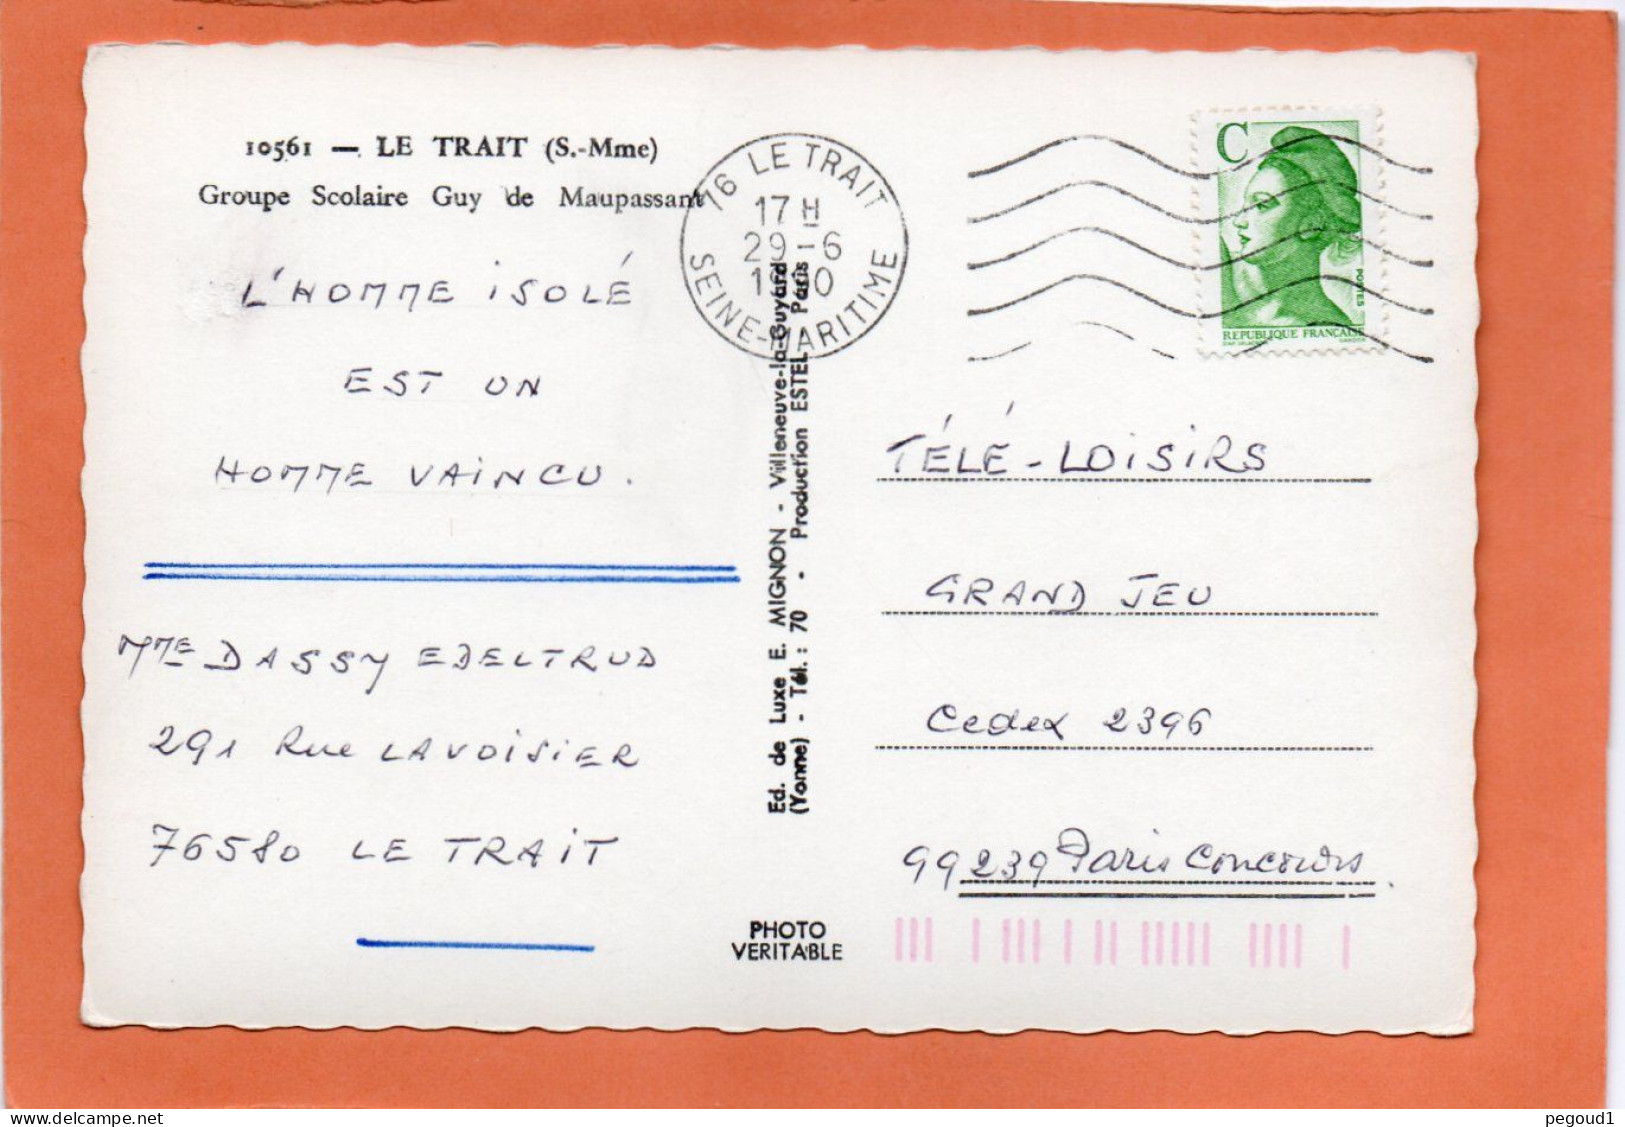 10561 — LE TRAIT (S.-Mme)
Groupe Scolaire Guy de Maupassant
L'HOMME ISOLÉ
EST UN
HOMME VAINCU.
MME DASSY EDELTRUD
291 Rue LAVOISIER
76580 LE TRAIT
76 LE TRAIT
17 H
29-6
SEINE-MARITIME
Ed. de Luxe E. MIGNON - Villeneuve-la-Guyard
(Yonne) - Tél. : 70 - Production ESTEL - Paris
PHOTO
VERITABLE
C
POSTES
REPUBLIQUE FRANÇAISE
GANDON
TÉLÉ-LOISIRS
GRAND JEU
Cedex 2396
99239 Paris Concours
pegoud1